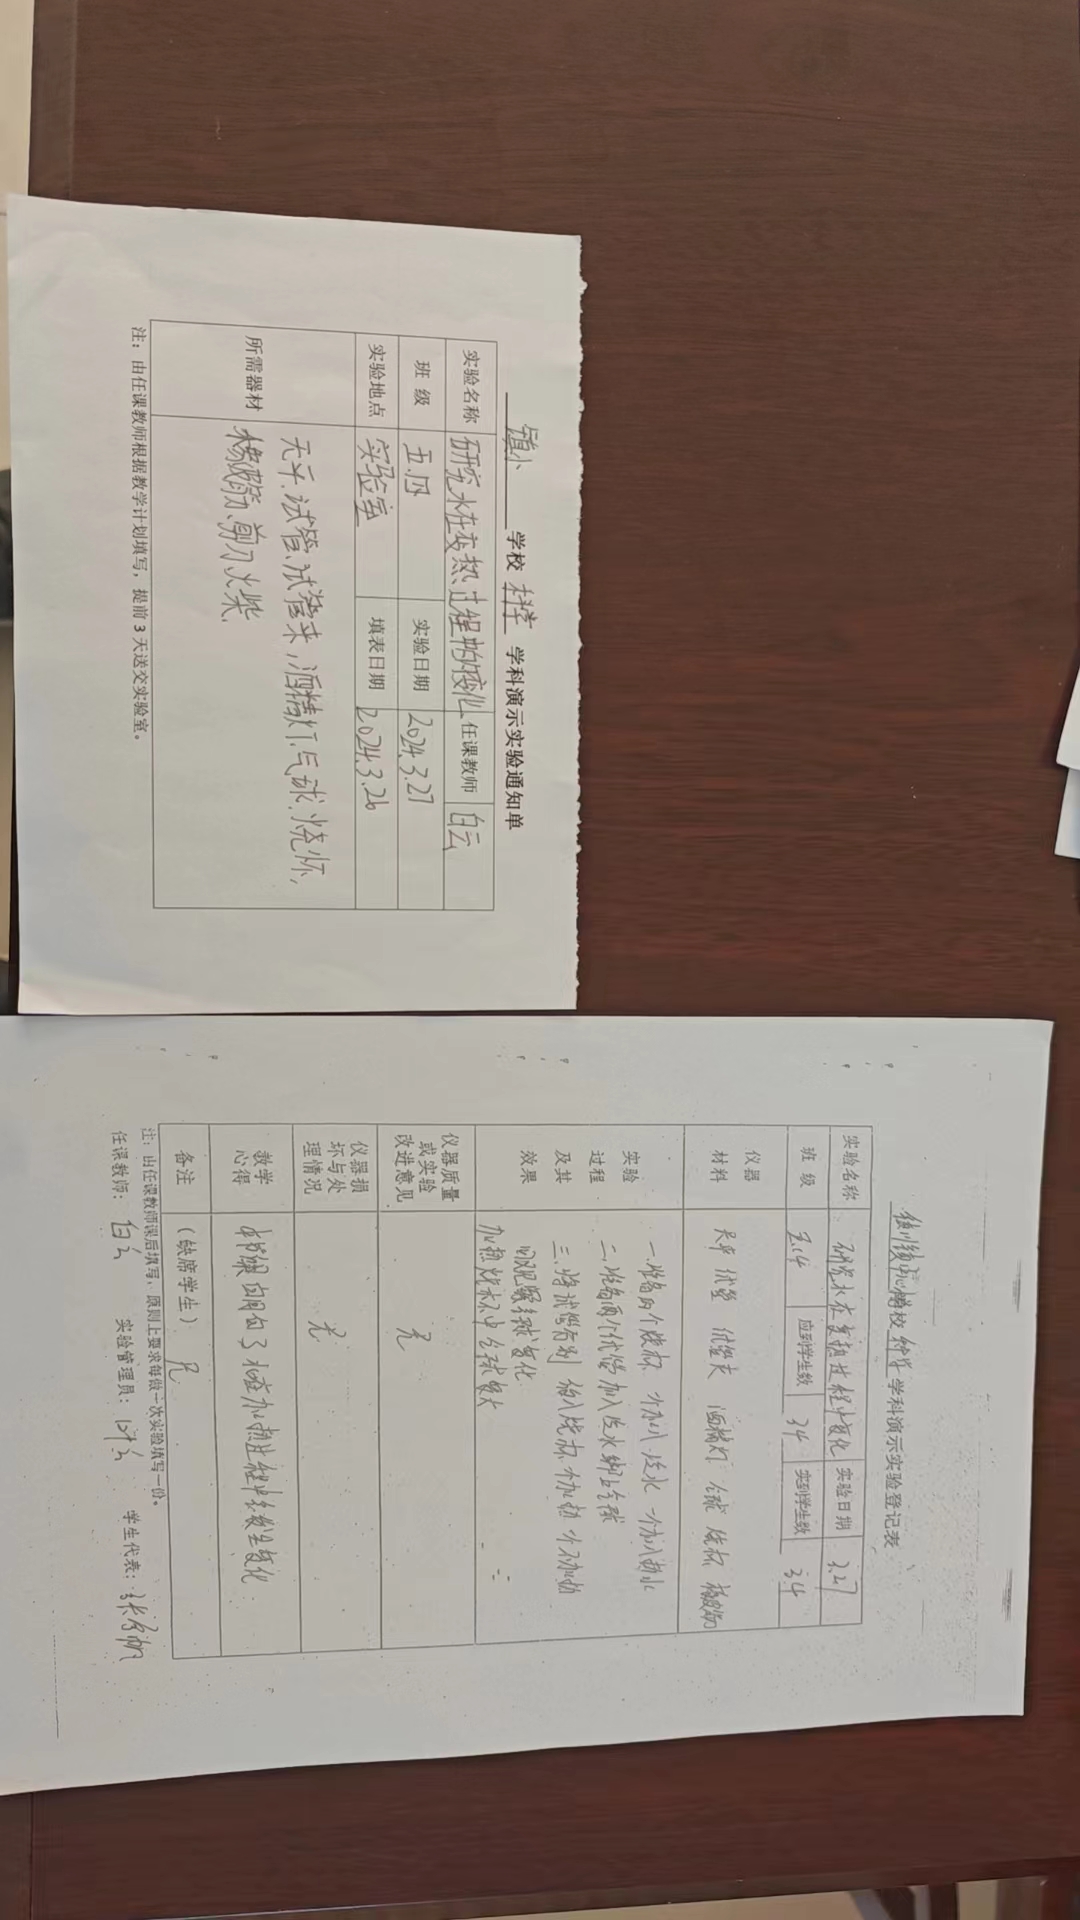 镇小 学校 科学 学科演示实验通知单
实验名称 研究水在变热过程中的变化 任课教师 白云
班 级 五.四 实验日期 2024.3.27
实验地点 实验室 填表日期 2024.3.26
所需器材 天平、试管、试管夹、酒精灯、气球、烧怀、
橡皮筋、剪刀火柴.
注：由任课教师根据教学计划填写，提前 3 天送交实验室。
学校 科学 学科演示实验登记表
实验名称 研究水在变热过程中变化 实验日期 3.27
班 级 五.4 应到学生数 34 实到学生数 34
仪器
材料
天平 试管 试管夹 酒精灯 气球 烧杯 橡皮筋
实验
过程
及其
效果
一.准备两个烧杯 一个加入冷水 一个加入热水
二.准备两个试管加入冷水 绑上气球
三.将试管分别 放入烧杯 一个加热 一个不加热
观察气球变化
加热烧杯中气球变大
仪器质量
或实验
改进意见
无
仪器损
坏与处
理情况
无
教学
心得
加热过程中发生变化
备注 （缺席学生） 无
注：由任课教师课后填写，原则上要求每做一次实验填写一份。
任课教师： 白云 实验管理员： 学生代表：